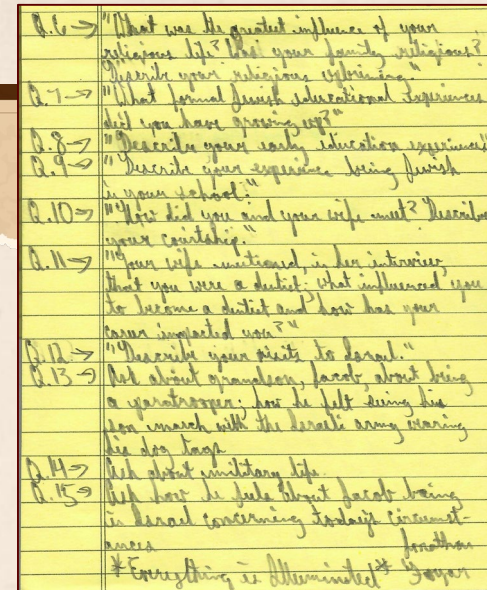 Q.6→ "What was the greatest influence of your
religious life? Was your family religious?
Describe your religious upbringing."
Q.7→ "What formal Jewish educational experiences
did you have growing up?"
Q.8→ "Describe your early education experiences"
Q.9→ "Describe your experience being Jewish
in your school."
Q.10→ "How did you and your wife meet? Describe
your courtship."
Q.11→ "Your wife mentioned, in her interview,
that you were a dentist; what influenced you
to become a dentist and how has your
career impacted you?"
Q.12→ "Describe your visits to Israel."
Q.13→ Ask about grandson, Jacob, about being
a paratrooper; how he felt seeing his
son march with the Israeli army wearing
his dog tags
Q.14→ Ask about military life.
Q.15→ Ask how he feels about Jacob being
in Israel concerning today's circumst-
ances Jonathan
*Everything is Illuminated*